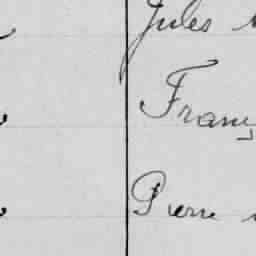 Jules
Franç
Pierre